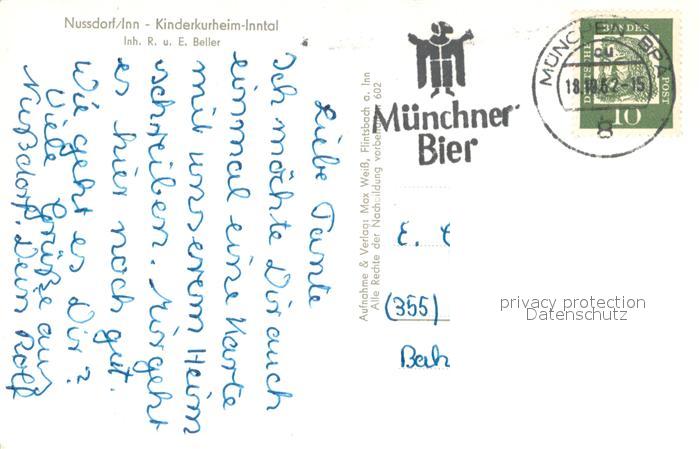 Nussdorf/Inn - Kinderkurheim-Inntal
Inh. R. u. E. Beller
Liebe Tante
Ich möchte Dir auch
einmal eine Karte
mit unserem Heim
schreiben. Mir geht
es hier noch gut.
Wie geht es Dir?
Viele Grüße aus
Nußdorf. Dein Rolf
Aufnahme & Verlag: Max Weiß, Flintsbach a. Inn
Alle Rechte der Nachbildung vorbehalten 602
Münchner
Bier
MÜNCHEN BPA
18.10.62-15
8
DEUTSCHE BUNDESPOST
10
E.
(355)
Bah
privacy protection
Datenschutz